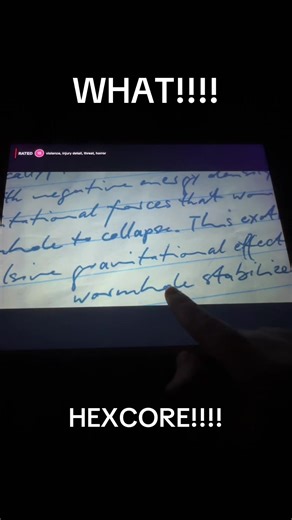 WHAT!!!!
RATED 15 violence, injury detail, threat, horror
th negative energy density
tational forces that wor
hole to collapse. This exot
lsive gravitational effect
wormhole stabilize
HEXCORE!!!!